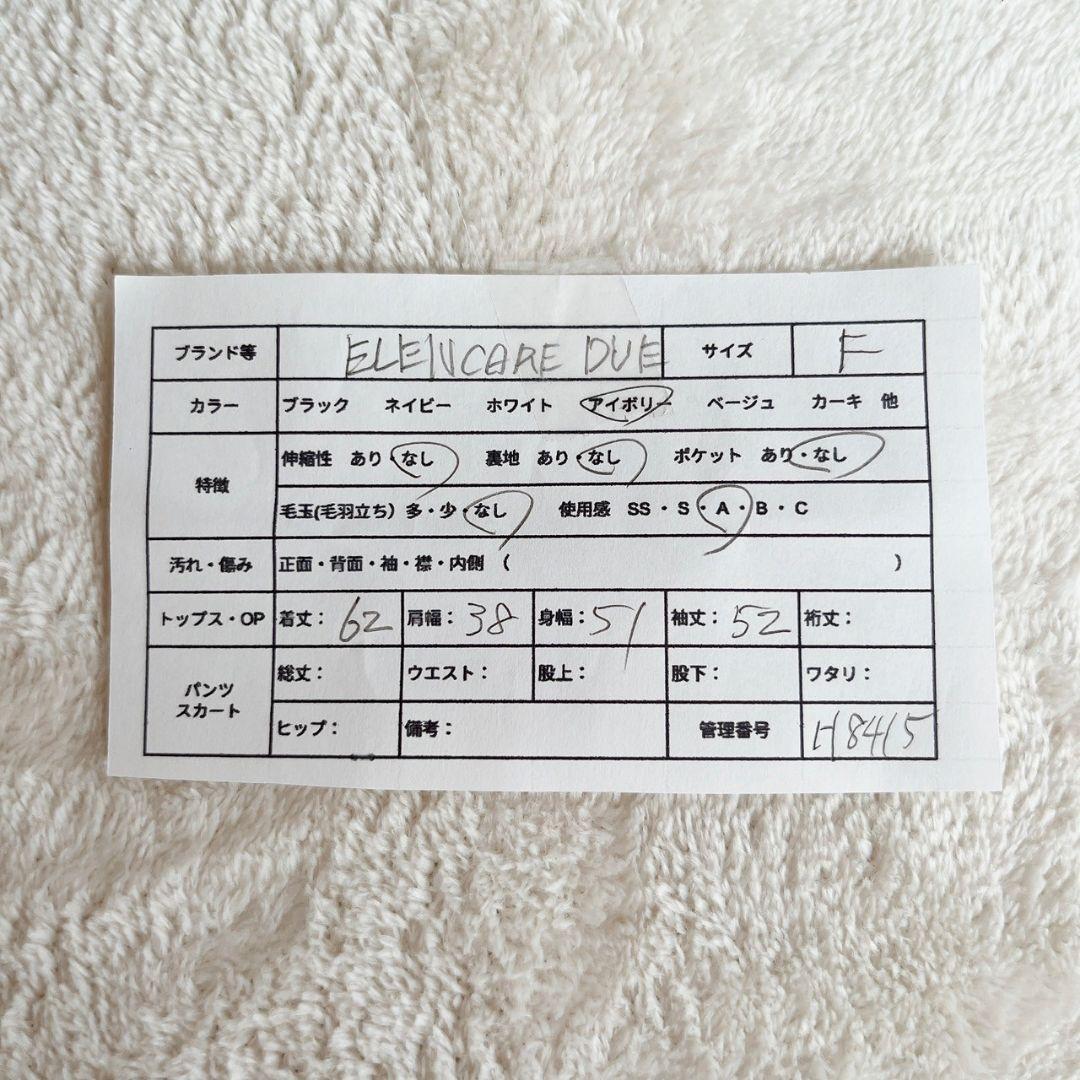 ブランド等 ELENCARE DUE サイズ F
カラー ブラック ネイビー ホワイト アイボリー ベージュ カーキ 他
特徴 伸縮性 あり・なし 裏地 あり・なし ポケット あり・なし
毛玉(毛羽立ち) 多・少・なし 使用感 SS・S・A・B・C
汚れ・傷み 正面・背面・袖・襟・内側 ( )
トップス・OP 着丈: 62 肩幅: 38 身幅: 51 袖丈: 52 裄丈:
パンツ スカート 総丈: ウエスト: 股上: 股下: ワタリ:
ヒップ: 備考: 管理番号 H8415